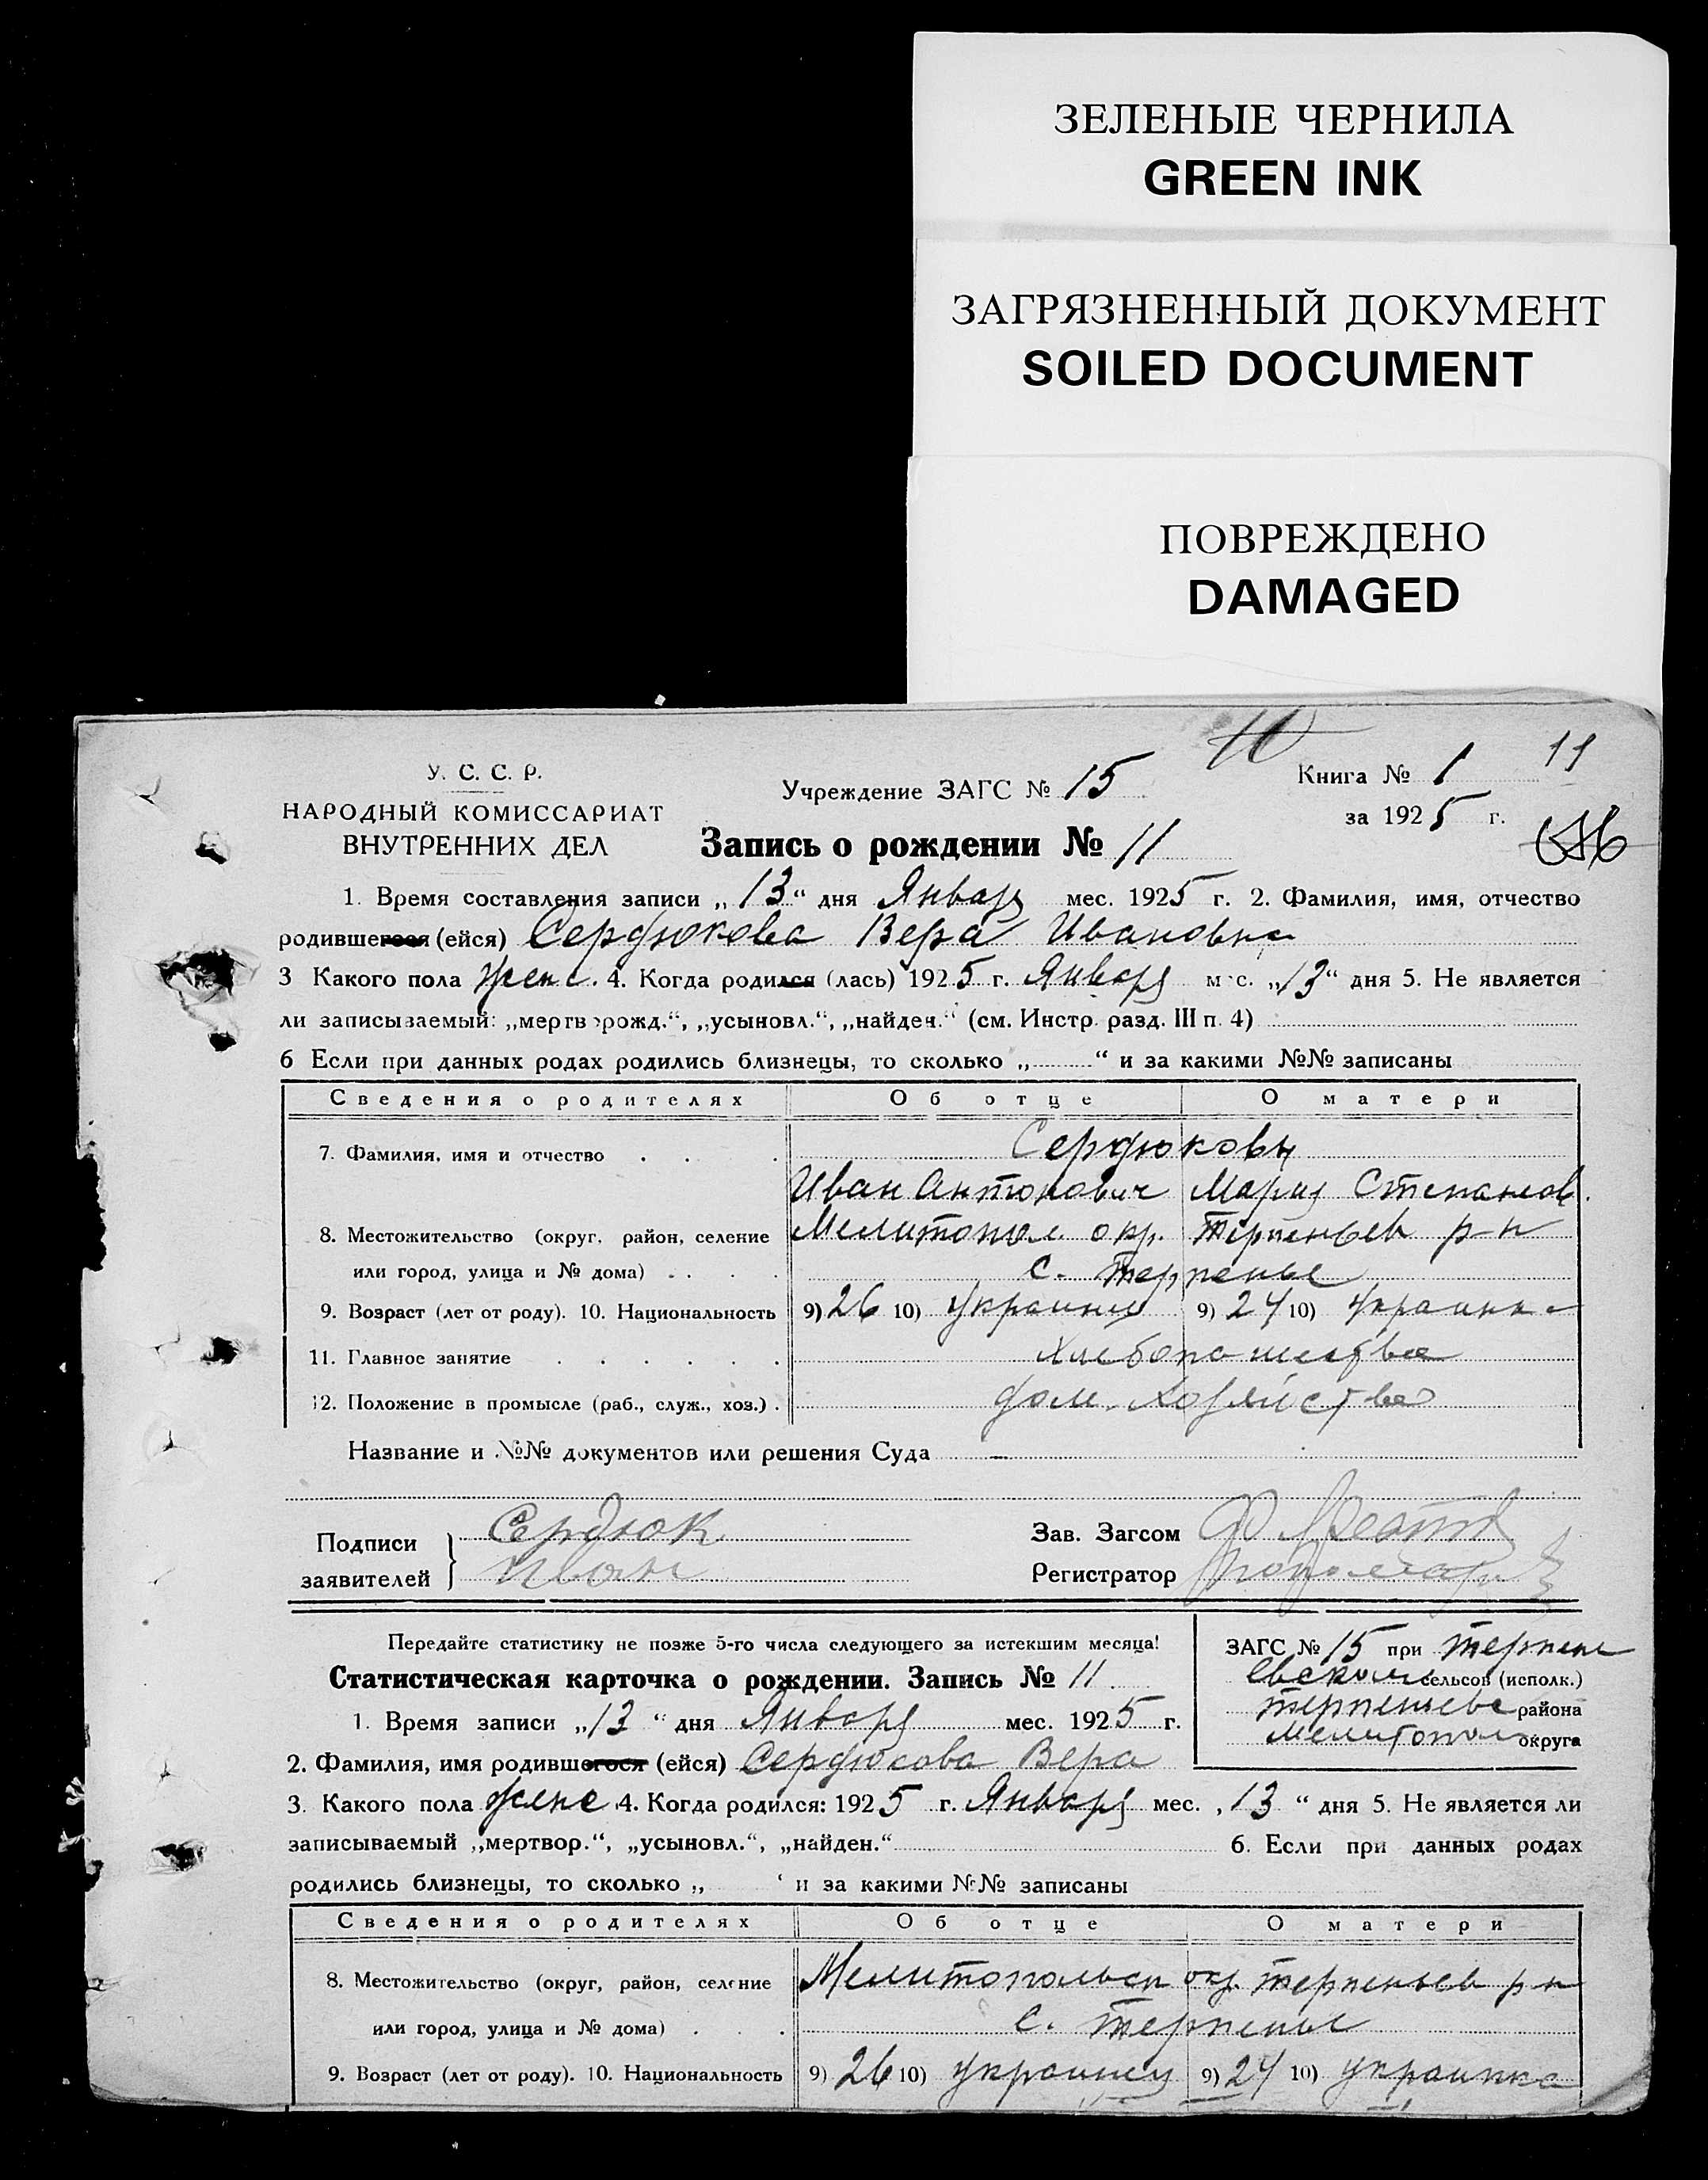 ЗЕЛЕНЫЕ ЧЕРНИЛА
GREEN INK
ЗАГРЯЗНЕННЫЙ ДОКУМЕНТ
SOILED DOCUMENT
ПОВРЕЖДЕНО
DAMAGED
11
У. С. С. Р.
НАРОДНЫЙ КОМИССАРИАТ
ВНУТРЕННИХ ДЕЛ
Учреждение ЗАГС № 15
Книга № 1
за 1925 г.
Запись о рождении № 11
1. Время составления записи „13“ дня Января мес. 1925 г. 2. Фамилия, имя, отчество
родившегося (ейся) Сердюкова Вера Ивановна
3 Какого пола женс. 4. Когда родился (лась) 1925 г. Января мес. „13“ дня 5. Не является
ли записываемый: „мертворожд.“, „усыновл.“, „найден.“ (см. Инстр. разд. III п. 4)
6 Если при данных родах родились близнецы, то сколько „ “ и за какими №№ записаны
Сведения о родителях Об отце О матери
7. Фамилия, имя и отчество Сердюковы
Иван Антонович Мария Степанов.
8. Местожительство (округ, район, селение Мелитопол. окр. Терпеньев р-н
или город, улица и № дома) с. Терпенье
9. Возраст (лет от роду). 10. Национальность 9) 26 10) украинец 9) 24 10) украинка
11. Главное занятие Хлебопашество
12. Положение в промысле (раб., служ., хоз.) дом. хозяйство
Название и №№ документов или решения Суда —
Подписи
заявителей
Сердюк
Иван
Зав. Загсом
Регистратор
Передайте статистику не позже 5-го числа следующего за истекшим месяца!
Статистическая карточка о рождении. Запись № 11
ЗАГС № 15 при Терпень
евском сельсов (исполк.)
Терпеньевс района
Мелитопол округа
1. Время записи „13“ дня Января мес. 1925 г.
2. Фамилия, имя родившегося (ейся) Сердюкова Вера
3. Какого пола женс 4. Когда родился: 1925 г. Января мес. „13“ дня 5. Не является ли
записываемый „мертвор.“, „усыновл.“, „найден.“ 6. Если при данных родах
родились близнецы, то сколько „ ‘ и за какими №№ записаны
Сведения о родителях Об отце О матери
8. Местожительство (округ, район, селение Мелитопольск окр. Терпеньев р-н
или город, улица и № дома) с. Терпенье
9. Возраст (лет от роду). 10. Национальность 9) 26 10) украинец 9) 24 10) украинка